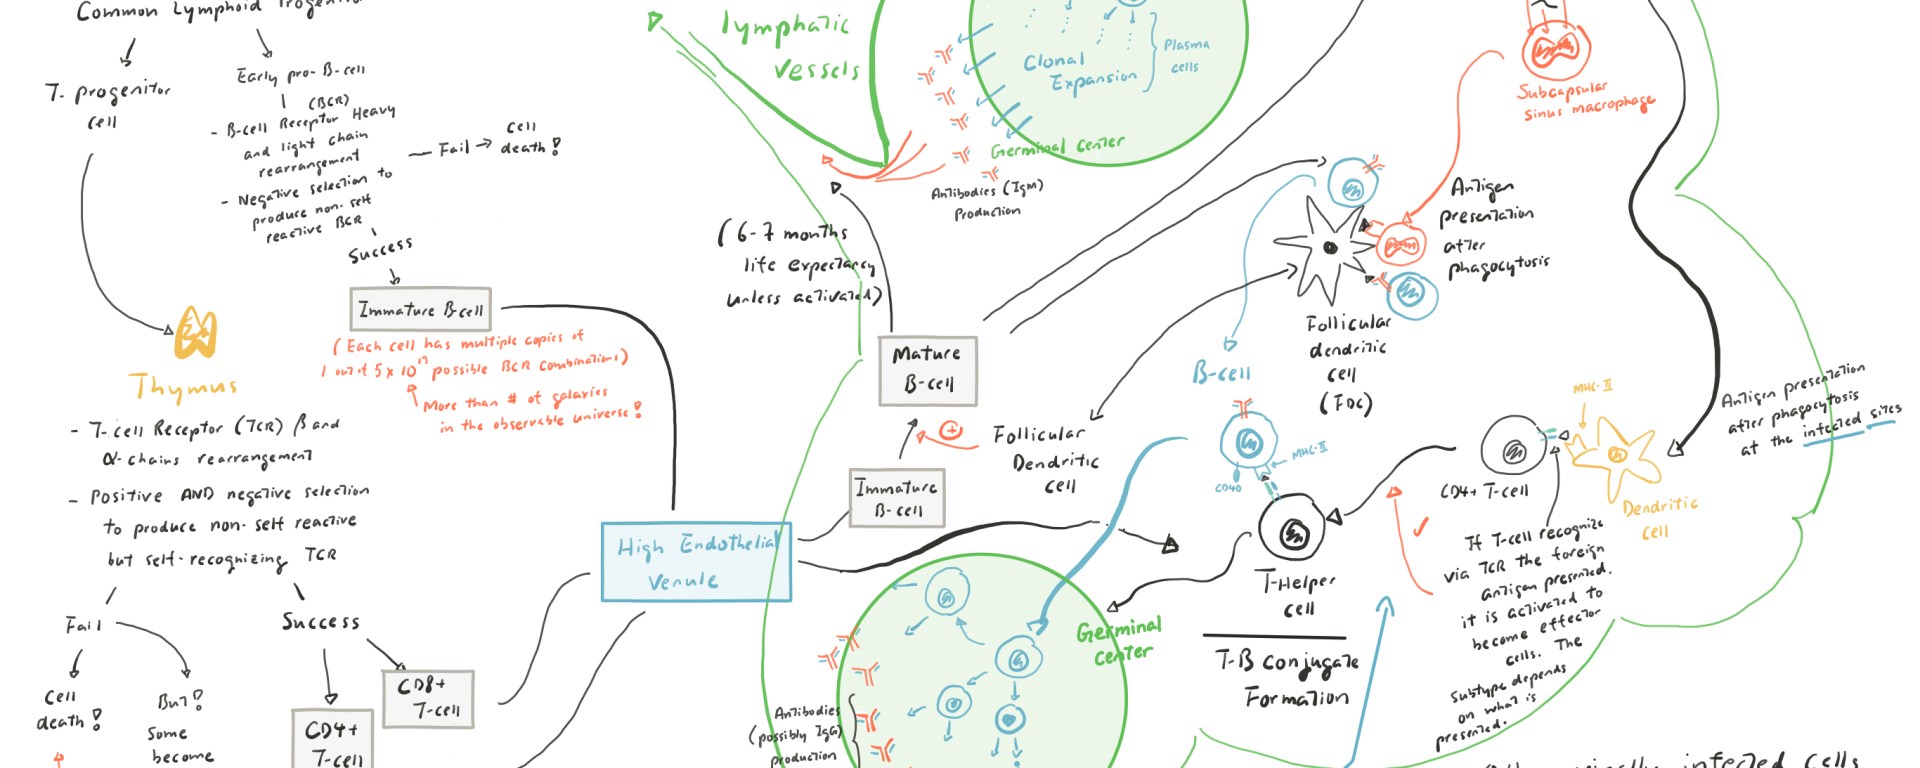 Common Lymphoid Progenitor
T-progenitor
cell
Early pro-B-cell
(BCR)
- B-cell Receptor Heavy
and light chain
rearrangement
- Negative selection to
produce non-self
reactive BCR
Fail
Cell
death!
Success
Immature B-cell
(Each cell has multiple copies of
1 out of 5x10¹³ possible BCR combinations)
More than # of galaxies
in the observable universe!
Thymus
- T-cell Receptor (TCR) β and
α-chains rearrangement
- Positive AND negative selection
to produce non-self reactive
but self-recognizing TCR
Fail
Success
Cell
death!
But!
Some
become
CD8+
T-cell
CD4+
T-cell
High Endothelial
Venule
lymphatic
vessels
Clonal
Expansion
Plasma
cells
Germinal center
Antibodies (IgM)
Production
(6-7 months
life expectancy
unless activated)
Mature
B-cell
+
Immature
B-cell
Follicular
Dendritic
cell
Subcapsular
Sinus macrophage
Antigen
presentation
after
phagocytosis
Follicular
dendritic
cell
(FDC)
B-cell
MHC-II
CD40
T-Helper
cell
T-B Conjugate
Formation
Germinal
center
Antibodies
(possibly IgG)
Production
CD4+ T-cell
MHC-II
Dendritic
cell
Antigen presentation
after phagocytosis
at the infected sites
If T-cell recognize
via TCR the foreign
antigen presented,
it is activated to
become effector
cells. The
subtype depends
on what is
presented.
virally infected cells